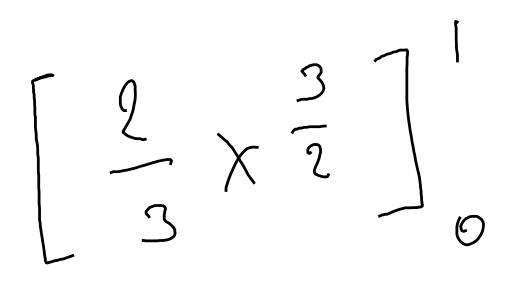 [ 2/3 x^(3/2) ]_0^1